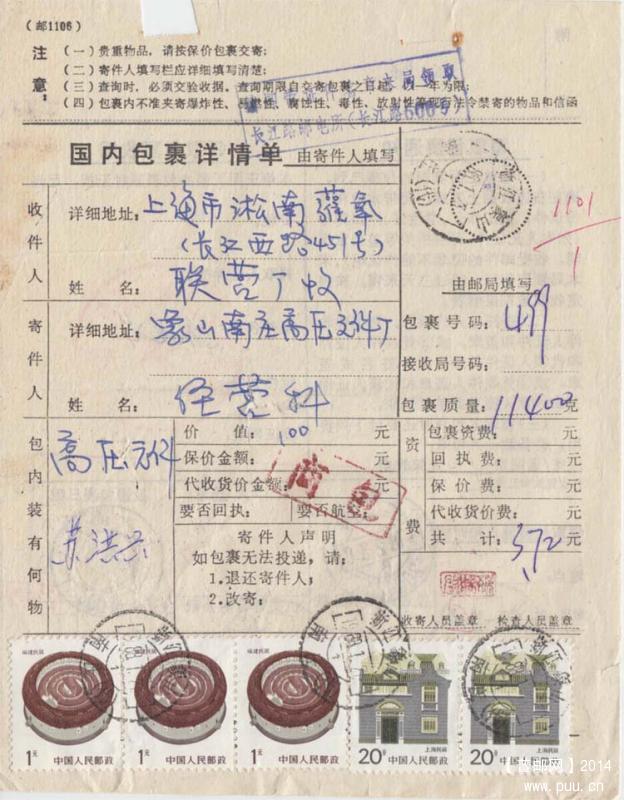 （邮1106）
注意：
（一）贵重物品，请按保价包裹交寄；
（二）寄件人填写栏应详细填写清楚；
（三）查询时，必须交验收据，查询期限自交寄包裹之日起，以一年为限；
（四）包裹内不准夹寄爆炸性、易燃性、腐蚀性、毒性、放射性等现行法令禁寄的物品和信函
局领取
长江路邮电所（长江路606号）
国内包裹详情单 由寄件人填写
浙江象山
1101
1
收件人
详细地址：上海市淞南蕴藻
（长江西路451号）
姓名：联营厂收
由邮局填写
寄件人
详细地址：象山南庄高压元件厂
姓名：经营科
包裹号码：499
接收局号码：
包裹质量：11400克
包内装有何物
高压元件
苏洪兴
价值：100元
保价金额：元
代收货价金额：元
要否回执：
要否航空：
商包
寄件人声明
如包裹无法投递，请：
1.退还寄件人；
2.改寄：
资费
包裹资费：元
回执费：元
保价费：元
代收货价费：元
共计：3.72元
收寄人员盖章 检查人员盖章
福建民居
1元 中国人民邮政
福建民居
1元 中国人民邮政
福建民居
1元 中国人民邮政
上海民居
20分 中国人民邮政
上海民居
20分 中国人民邮政
2014
www.puu.cn